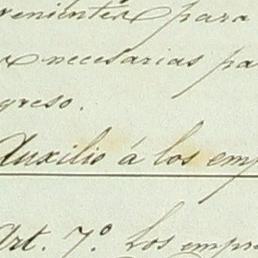 venientes para
necesarias pa
greso.
Auxilio á los emp
Art. 7.º Los empre